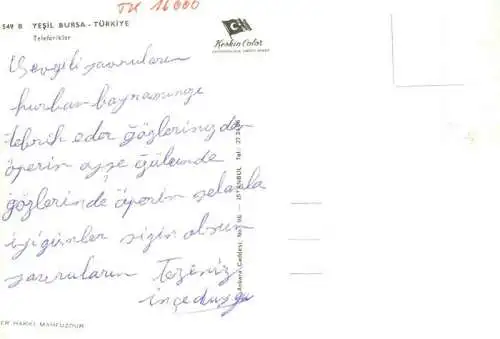 TH 16000
549 B YEŞİL BURSA - TÜRKİYE
Teleferikler
Keskin Color
Sevgili yavruların
kurban bayramınızı
tebrik eder gözlerinizden
öperin ayşe gülünde
gözlerinde öperin selamla
iyi günler sizin olsun
yavruların Tezeniz
Ankara Caddesi No: 98 — İSTANBUL Tel: 27
ER HAKKI MAHFUZDUR